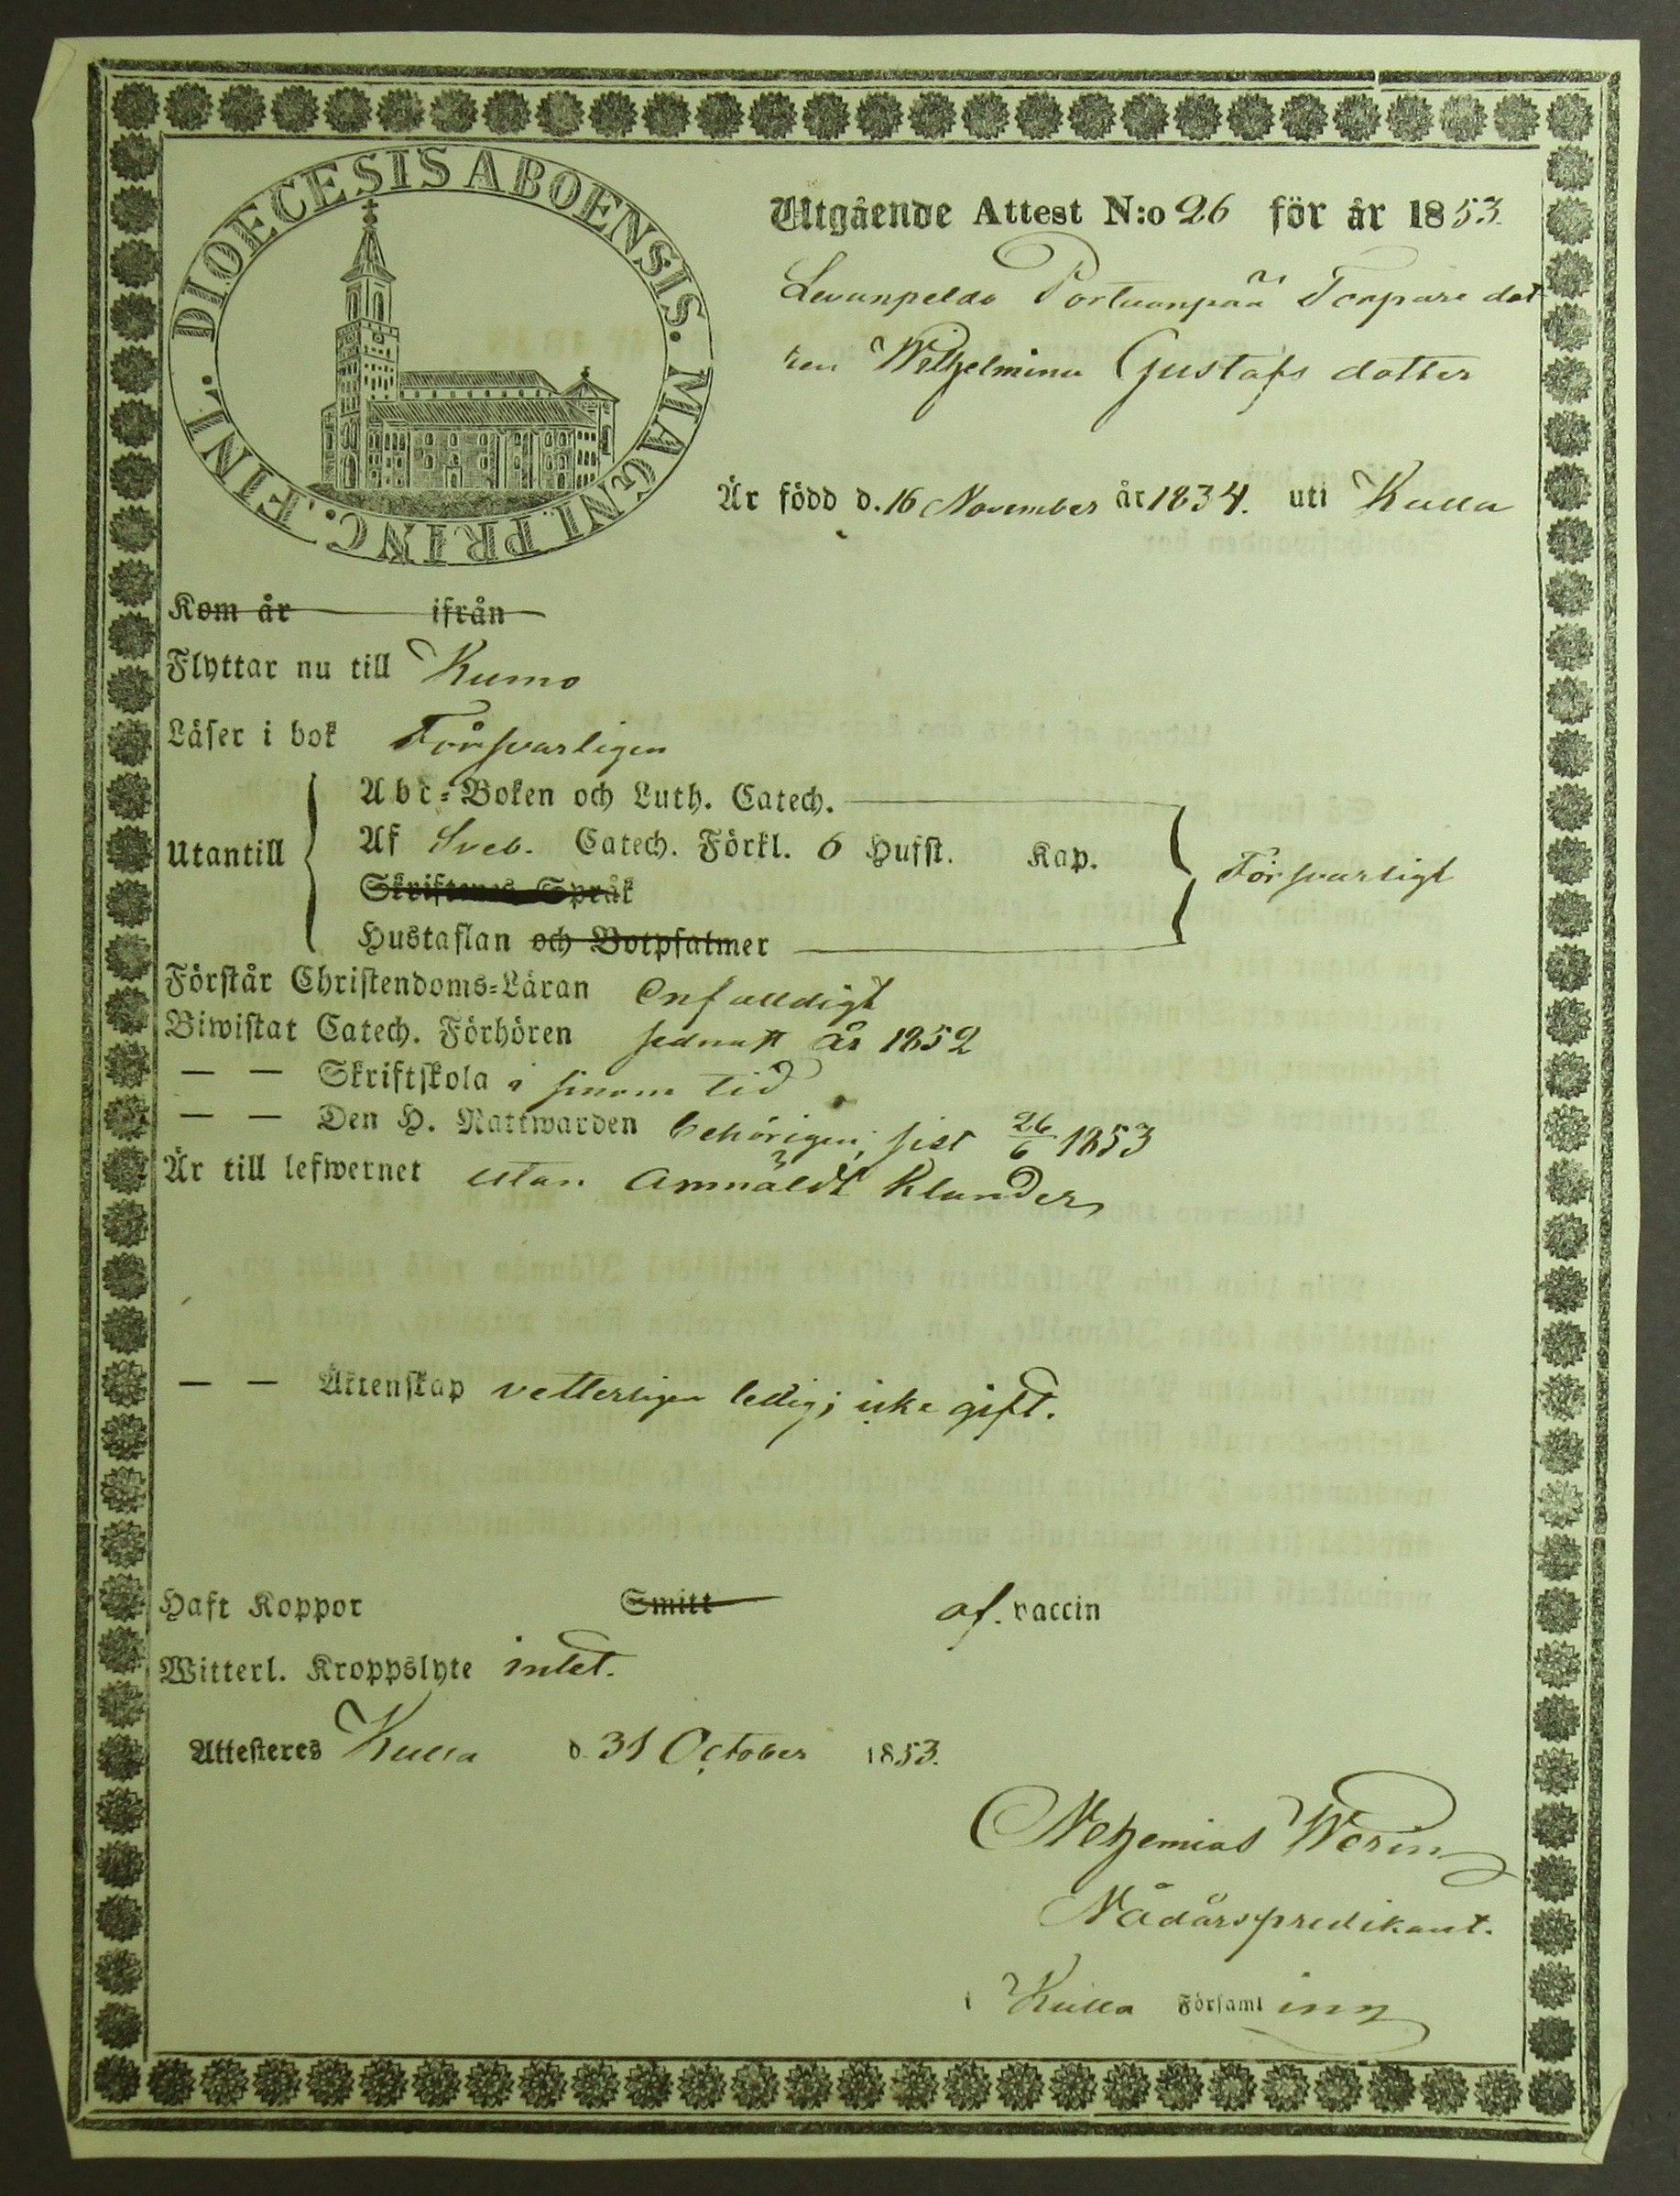 DIOECESIS ABOENSIS. MAGNI. PRINC. FINL.
Utgående Attest N:o 26 för år 1853
Levanpeldo Portuanpää Torpare dot
ren Wilhelmina Gustafs dotter
Är född d. 16 November år 1834. uti Kulla
Kom år ifrån
Flyttar nu till Kumo
Läser i bok Försvarligen
Abc-Boken och Luth. Catech.
Utantill Af Sveb. Catech. Förkl. 6 Hufst. Kap. Försvarligt
Skriftenes Språk
Hustaflan och Botpsalmer
Förstår Christendoms-Läran Enfalldigt
Biwistat Catech. Förhören sednast år 1852
— — Skriftskola i sinom tid
— — Den H. Nattwarden behörigen, sist 26/6 1853
Är till lefwernet utan anmäldt klander
— — Äktenskap vetterligen ledig; icke gift.
Haft Koppor Smitt af. vaccin
Witterl. Kroppslyte intet.
Attesteres Kulla d. 31 October 1853.
Nehemias Werin
Nådårspredikant.
i Kulla Församling